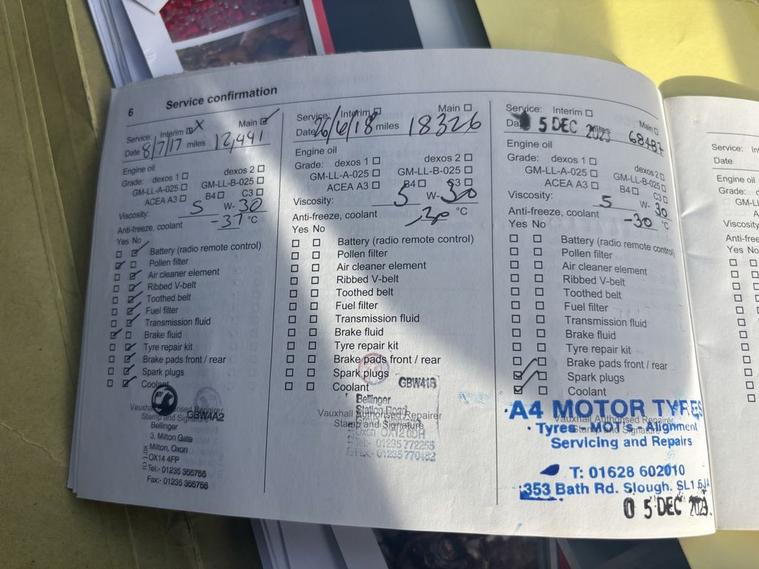 6 Service confirmation
Service: Interim Main
Date 8/7/17 miles 12,491
Engine oil
Grade: dexos 1 dexos 2
GM-LL-A-025 GM-LL-B-025
ACEA A3 B4 C3
Viscosity: 5 W- 30
Anti-freeze, coolant -37 °C
Yes No
Battery (radio remote control)
Pollen filter
Air cleaner element
Ribbed V-belt
Toothed belt
Fuel filter
Transmission fluid
Brake fluid
Tyre repair kit
Brake pads front / rear
Spark plugs
Coolant
GBW4A2
Bellinger
3, Milton Gate
Milton, Oxon
OX14 4FP
Tel:- 01235
Fax:- 01235
Service: Interim Main
Date 26/6/18 miles 18326
Engine oil
Grade: dexos 1 dexos 2
GM-LL-A-025 GM-LL-B-025
ACEA A3 B4 C3
Viscosity: 5 W- 30
Anti-freeze, coolant °C
Yes No
Battery (radio remote control)
Pollen filter
Air cleaner element
Ribbed V-belt
Toothed belt
Fuel filter
Transmission fluid
Brake fluid
Tyre repair kit
Brake pads front / rear
Spark plugs
Coolant
Bellinger
Station Road
Vauxhall Authorised Repairer
Stamp and Signature
Service: Interim Main
5 DEC 2023 68487
Engine oil
Grade: dexos 1 dexos 2
GM-LL-A-025 GM-LL-B-025
ACEA A3 B4 C3
Viscosity: 5 W- 30
Anti-freeze, coolant -30 °C
Yes No
Battery (radio remote control)
Pollen filter
Air cleaner element
Ribbed V-belt
Toothed belt
Fuel filter
Transmission fluid
Brake fluid
Tyre repair kit
Brake pads front / rear
Spark plugs
Coolant
A4 MOTOR TYRES
Tyres - MOT's - Alignment
Servicing and Repairs
T: 01628 602010
353 Bath Rd. Slough. SL1
0 5 DEC 2023
Date
Engine oil
Grade:
Viscosity
Yes No